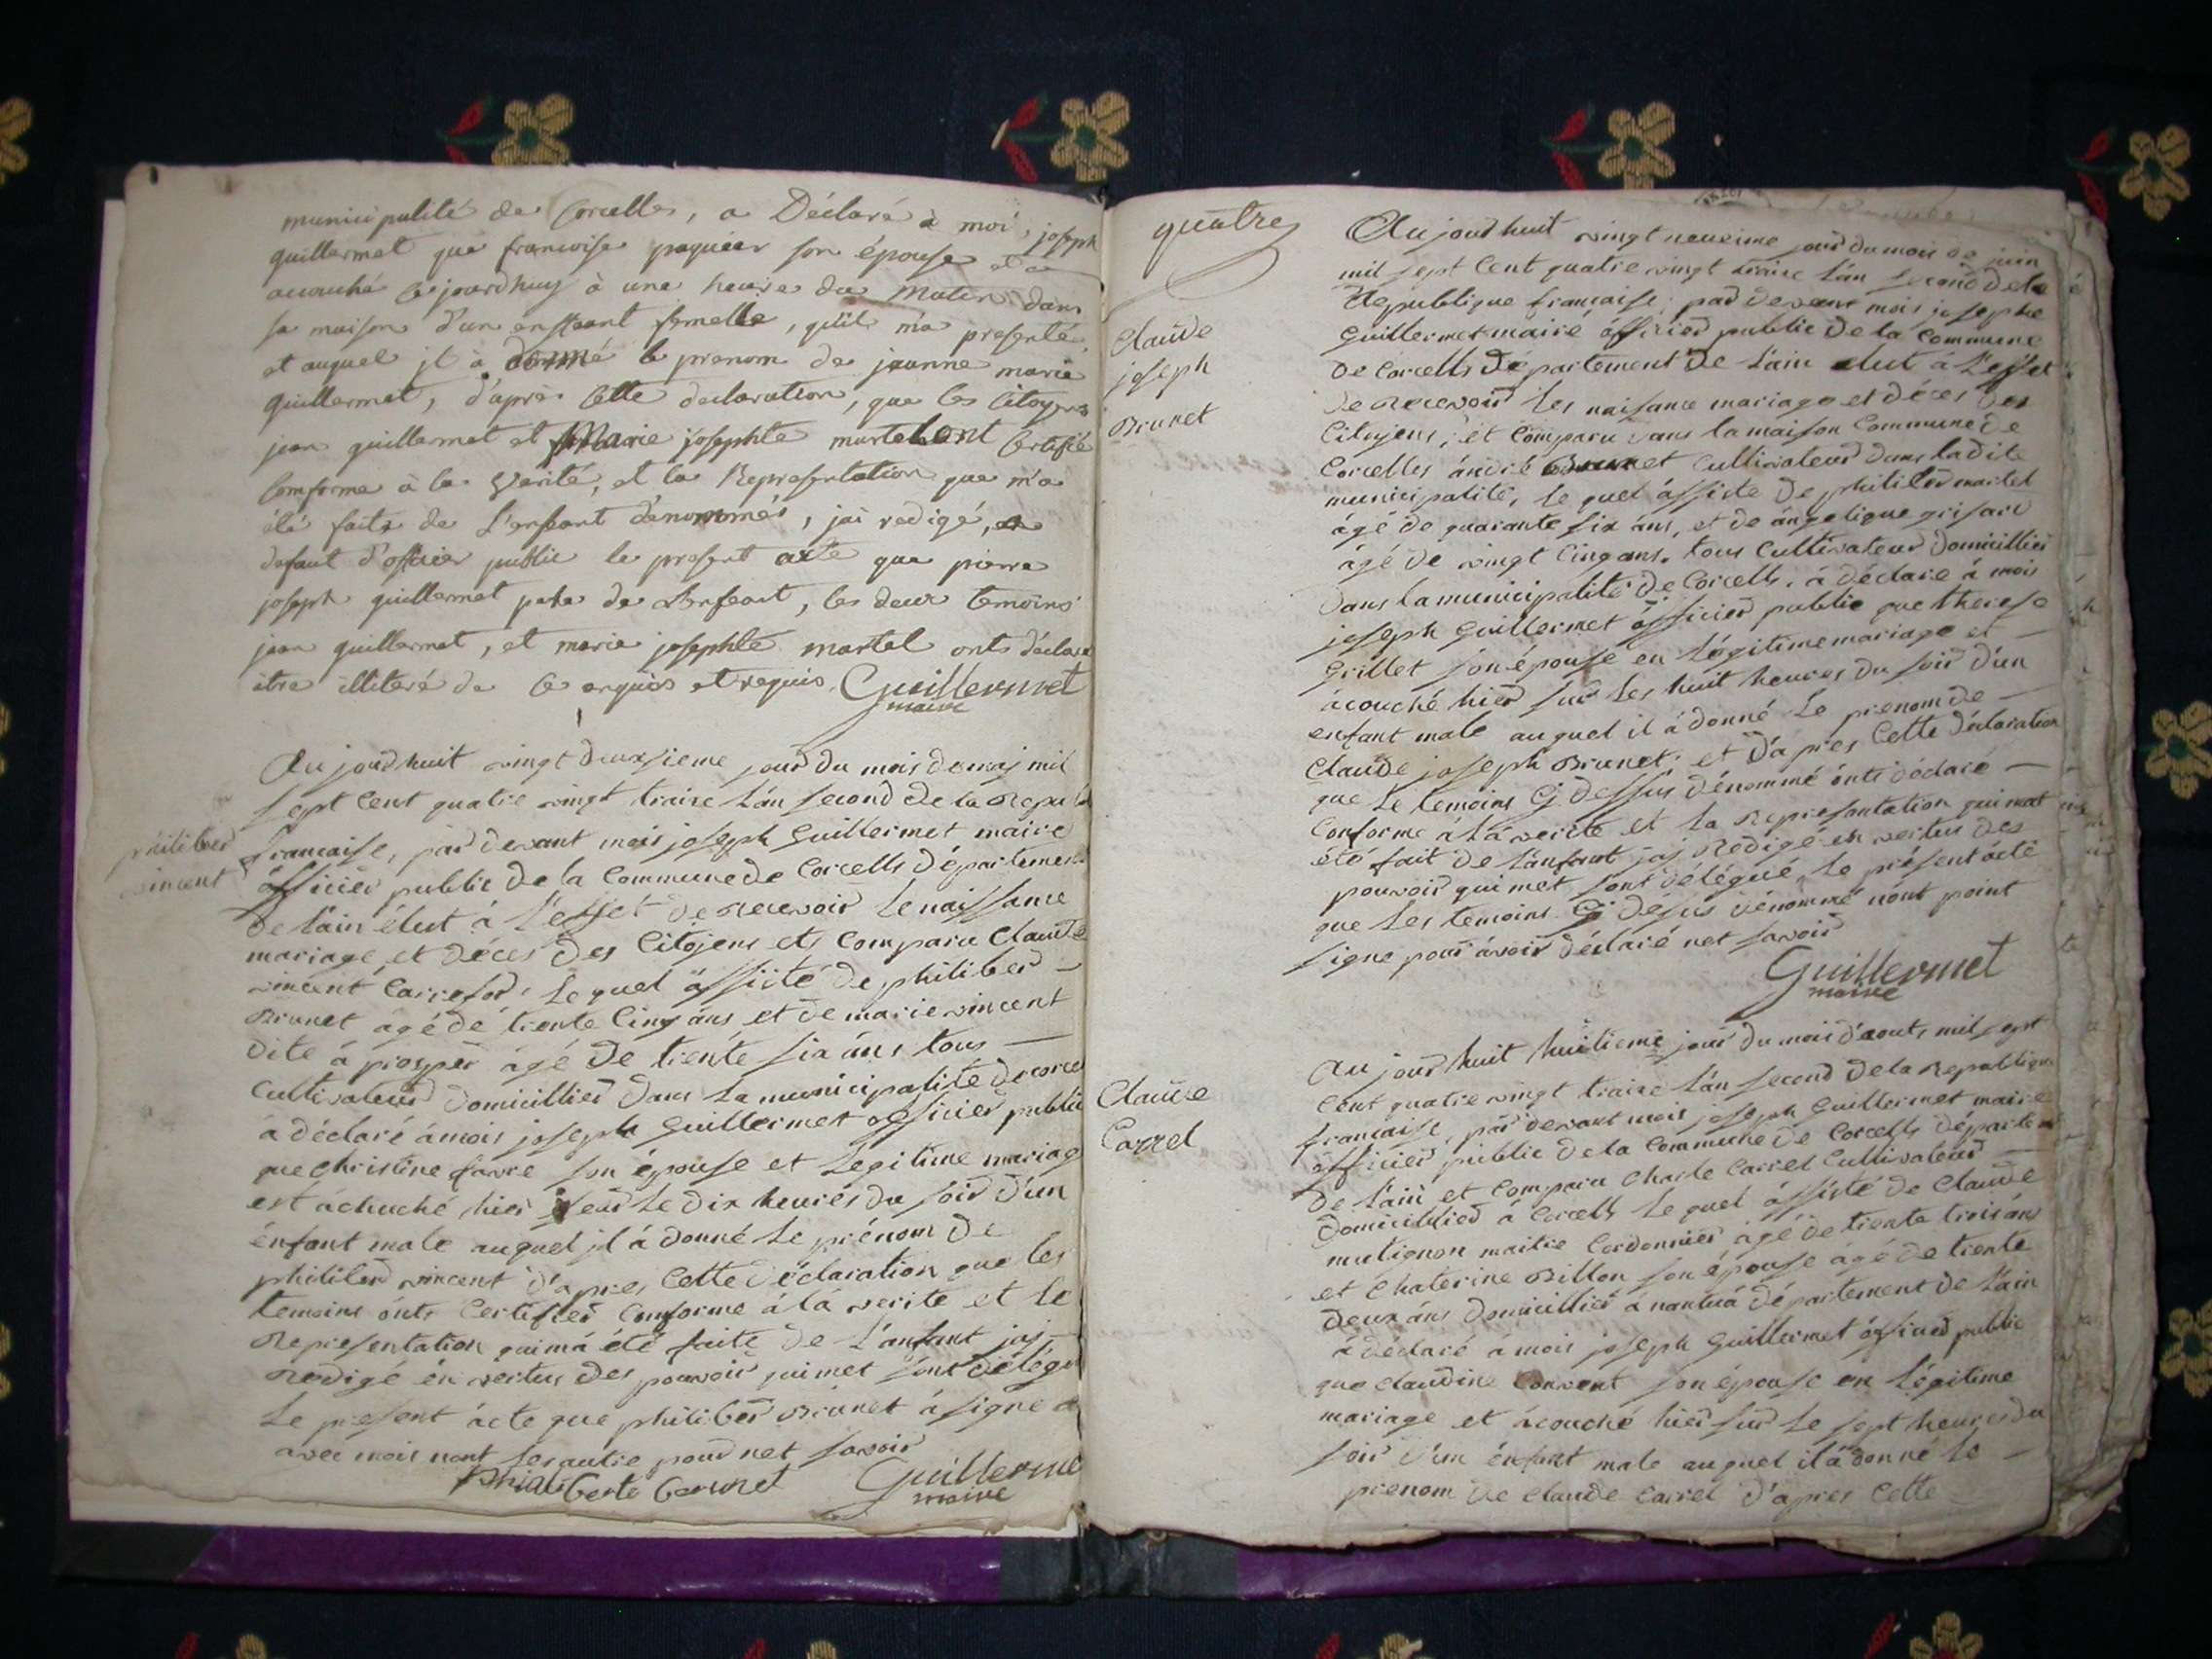 municipalité de Corcelles, a Déclaré à moi, joseph
guillermet que francoise paquier son épouse est
acouché cejourdhuy à une heure du Matin dans
sa maison d'un enffant femelle, qu'il m'a presenté
et auquel jl a donné le prenom de jeanne marie
guillermet, d'après cette declaration, que les Citoyens
jean guillermet et Marie josephte martel ont Certifié
Conforme à la Verité, et la Représentation que m'a
été faite de L'enfeant dénommés, jai redigé, en
defaut d'officier public le present acte que pierre
joseph guillermet pere de L'enfeant, les deux temoins
jean guillermet, et marie josephte martel ont déclaré
être illiteré de ce enquis et requis. Guillermet
maire
Au jourdhuit vingt deuxsieme jour du mois de maj mil
sept Cent quatre vingt traize L'an second de la Repub
philiberd
vincent
francaise, par devant mois joseph Guillermet maire
officier public de la Commune de Corcells département
de L'ain élut à L'effet de Recevoir Le naissance
mariage et décés des Citojens et Comparu Claude
vincent Carrefor, Le quel assisté de philiberd
Brunet agé de trente Cinq ans et de marie vincent
dite à prosper agé de trente six ans tous
Cultivateur domicillier dans La municipalité de corce
à déclaré à mois joseph Guillermet officier public
que christine favre son épouse et Legitime mariag
est achuché hier seur Le dix heures du soir d'un
énfant male auquel jl à donné Le prénom de
philiberd vincent d'apres Cette déclaration que les
temoins onts Certifier Conforme à la verité et Le
Representation qui m'a été faite de L'anfant jaj
Redigé én vertus des pouvoir qui met sont délégu
Le present acte que philiber Brunet à signe
avec mois nont Les autre pour net savoir
Phialiberte bernnet Guillerme
maire
quatre
Claude
joseph
Brunet
Au jourdhuit vingt neuvieme jour du mois de juin
mil sept Cent quatre vingt traize L'an second de la
République francaise; par devant mois josephe
Guillermet maire officier public de la Commune
de Corcells département de L'ain élut à L'effet
de Recevoir Les naisance mariage et décés des
Citojens; et Comparu dans la maison Commune de
Corcelles andré Brunet Cultivateur dans Ladite
municipalité, Le quel assiste de philiber martel
âgé de quarante six ans, et de angelique grisard
âgé de vingt Cinq ans. tous Cultivateur domicillier
dans la municipalité de Corcells. à déclare à mois
joseph Guillermet officier public que therese
Grillet son épouse en Légitime mariage et
acouché hier sur Les huit heures du soir d'un
enfant male auquel il à donné Le prenom de
Claude joseph Brunet; et d'apres Cette déclaration
que Le temoins Cj dessus dénommé onts déclaré
Conforme à la verité et La Represontation qui mat
été fait de L'anfant jaj Rédigé en vertus des
pouvoir qui met sont délégué, Le présent acte
que Les temoins Cj desus dénommé nont point
signe pour avoir déclaré net savoir
Guillermet
maire
Claude
Carrel
Au jour huit huitieme jour du mois d'aout, mil sept
Cent quatre vingt traize L'an second de la Republique
francaise, par devant mois joseph Guillermet maire
officier public de la Commune de Corcells départem
de L'ain et Comparu Charle Carrel Cultivateur
domicillier à Corcells Le quel assisté de Claude
mutignon maitre Cordonnier âgé de trente trois ans
et Chaterine Billon son épouse agé de trente
deux ans domicillier à nantua département de L'ain
à déclaré à mois joseph Guillermet officier public
que Claudine Convent son épouse en Légitime
mariage et acouché hier sur Le sept heures du
soir d'un énfant male auquel il à donné Le
prenom de Claude Carrel d'apres Cette